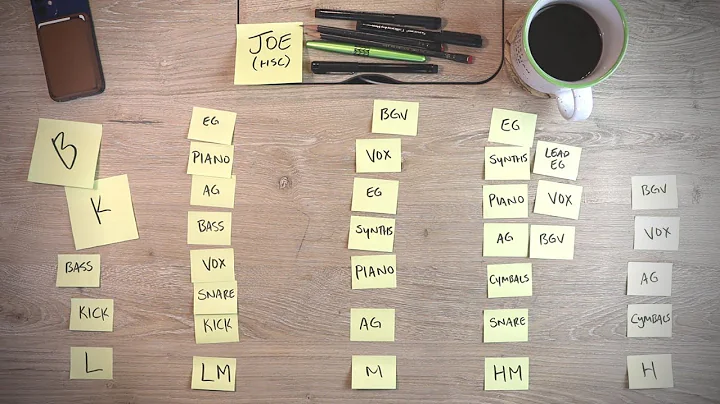 JOE
(HSC)
B
K
BASS
KICK
L
EG
PIANO
AG
BASS
VOX
SNARE
KICK
LM
BGV
VOX
EG
SYNTHS
PIANO
AG
M
EG
SYNTHS
LEAD
EG
PIANO
VOX
AG
BGV
CYMBALS
SNARE
HM
BGV
VOX
AG
CYMBALS
H